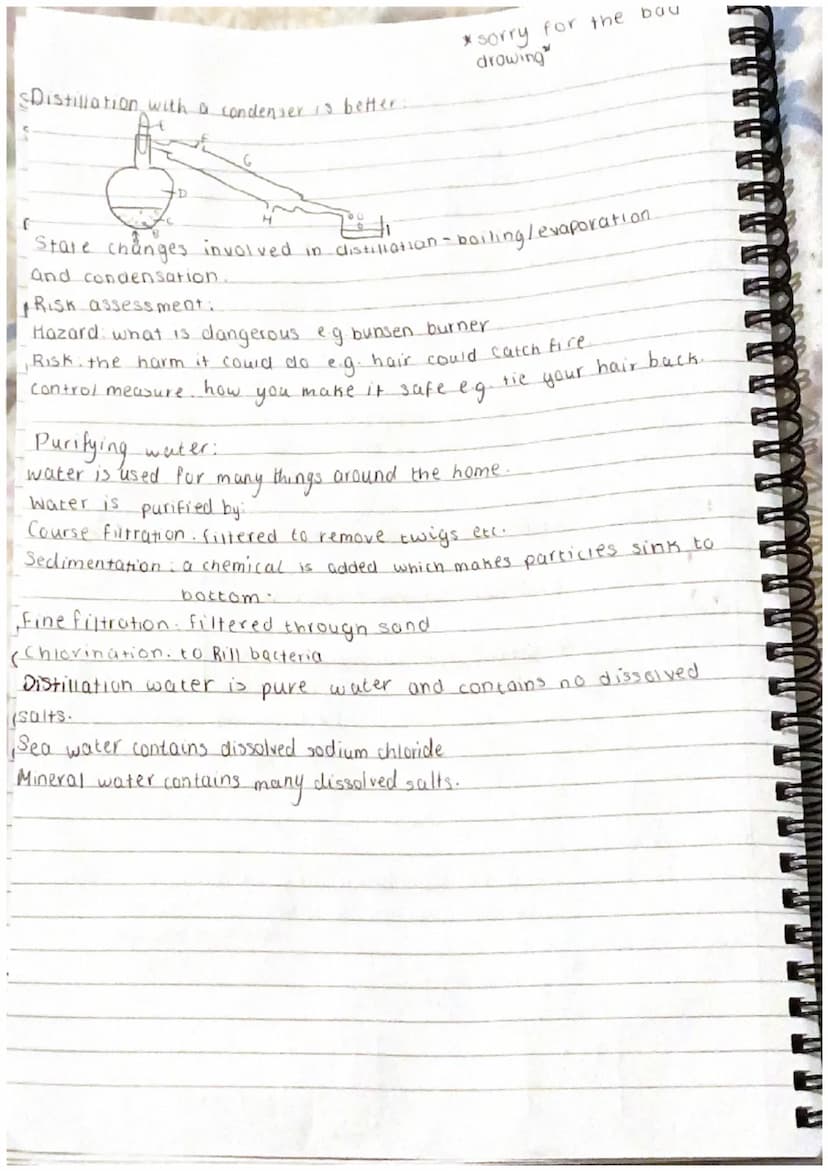 *sorry for the bad
drawing*
Distillation with a condenser is better:
E
F
G
D
C
B
H
I
State changes involved in distillation - boiling/evaporation
and condensation.
Risk assessment:
Hazard: what is dangerous eg bunsen burner
Risk. the harm it could do e.g. hair could catch fire
control measure. how you make it safe eg. tie your hair back.
Purifying water:
water is used for many things around the home.
Water is purified by:
Course filtration. filtered to remove twigs etc.
Sedimentation: a chemical is added which makes particles sink to
bottom.
Fine filtration: filtered through sand
Chlorination. to kill bacteria
Distillation water is pure water and contains no dissolved
salts.
Sea water contains dissolved sodium chloride
Mineral water contains many dissolved salts.